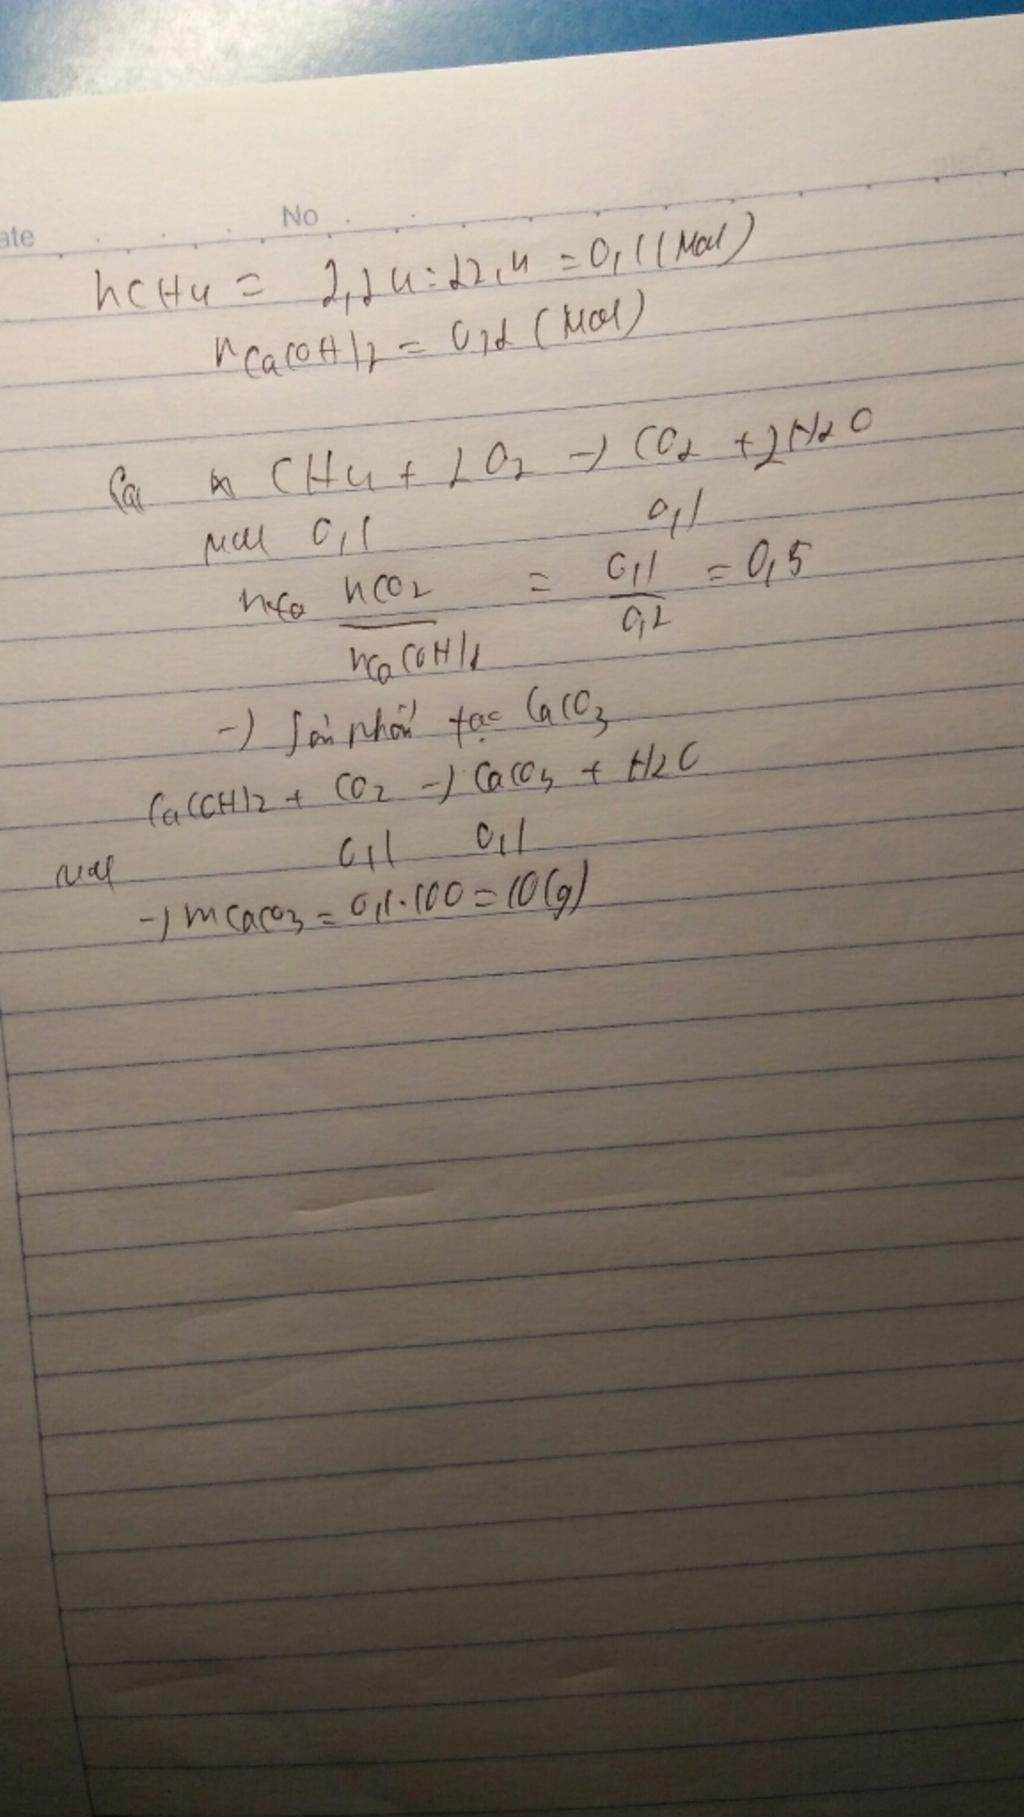 ate No
nCH4 = 2,24:22,4 = 0,1 (mol)
nCa(OH)2 = 0,2 (mol)
CH4 + 2O2 -> CO2 + 2H2O
mol 0,1 0,1
nCO2 = 0,1 = 0,5
nCa(OH)2 0,2
-> sản phẩm tạo CaCO3
Ca(OH)2 + CO2 -> CaCO3 + H2O
mol 0,1 0,1
-> mCaCO3 = 0,1.100 = 10(g)